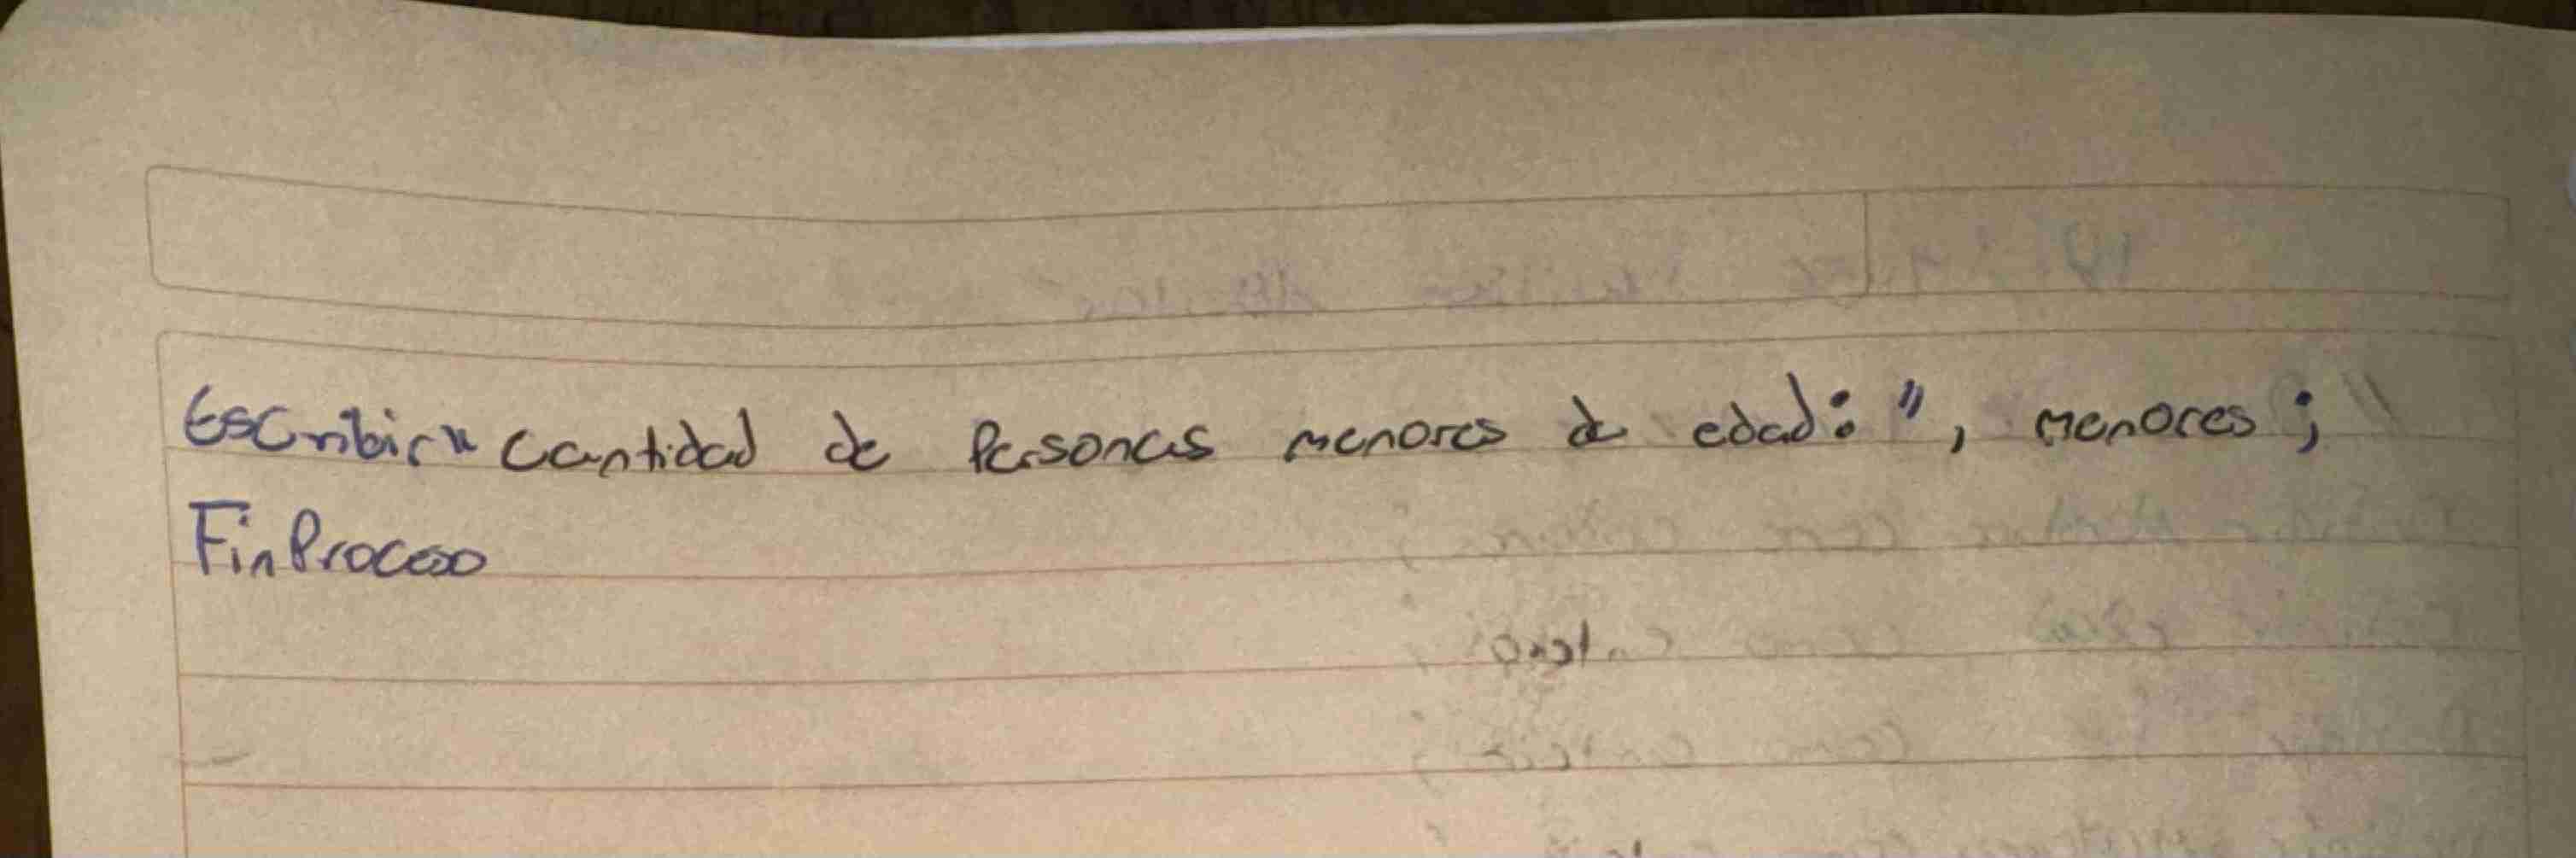 Escribir" Cantidad de Personas menores de edad: ", menores;
FinProceso